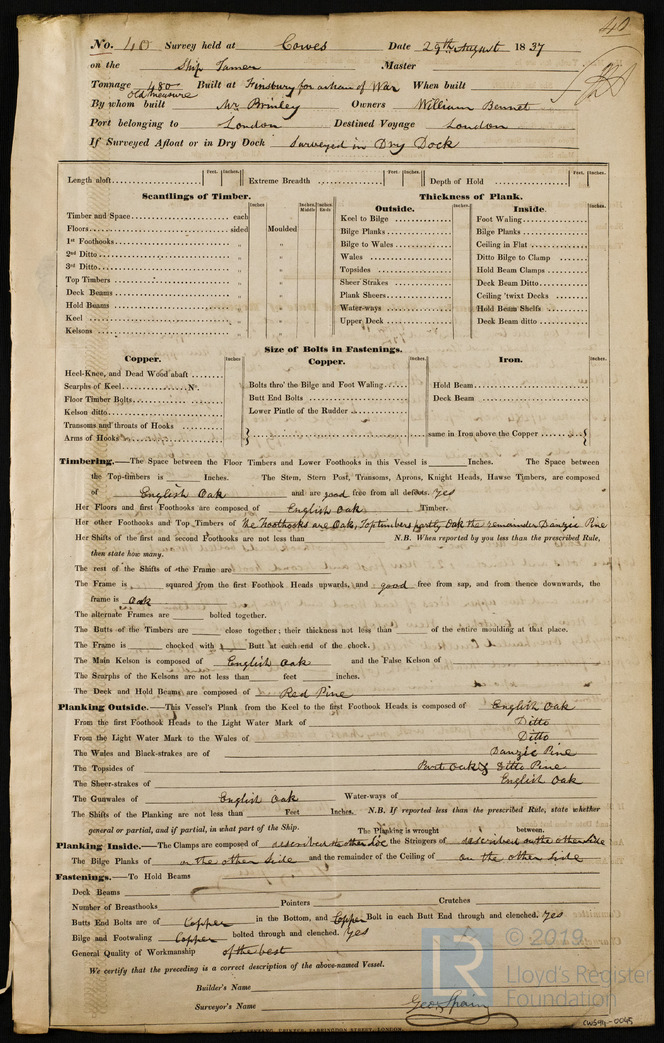 40
No. 40 Survey held at Cowes Date 29th August 1837
on the Ship Tamer Master
Tonnage 480 Built at Finsbury for a Man of War When built
Old Measure
By whom built Mr. Brinley Owners William Bennet
Port belonging to London Destined Voyage London
If Surveyed Afloat or in Dry Dock Surveyed in Dry Dock
Feet. Inches. Feet. Inches. Feet. Inches.
Length aloft Extreme Breadth Depth of Hold
Scantlings of Timber.
Inches Inches Middle Inches Ends
Timber and Space each
Floors sided Moulded
1st Foothooks " "
2nd Ditto " "
3rd Ditto " "
Top Timbers " "
Deck Beams " "
Hold Beams " "
Keel " "
Kelsons " "
Thickness of Plank.
Outside. Inches.
Keel to Bilge
Bilge Planks
Bilge to Wales
Wales
Topsides
Sheer Strakes
Plank Sheers
Water-ways
Upper Deck
Inside. Inches.
Foot Waling
Bilge Planks
Ceiling in Flat
Ditto Bilge to Clamp
Hold Beam Clamps
Deck Beam Ditto
Ceiling 'twixt Decks
Hold Beam Shelfs
Deck Beam ditto
Size of Bolts in Fastenings.
Copper. Inches
Heel-Knee, and Dead Wood abaft
Scarphs of Keel No.
Floor Timber Bolts
Kelson ditto
Transoms and throats of Hooks
Arms of Hooks
Copper. Inches.
Bolts thro' the Bilge and Foot Waling
Butt End Bolts
Lower Pintle of the Rudder
Iron. Inches
Hold Beam
Deck Beam
same in Iron above the Copper
Timbering.—The Space between the Floor Timbers and Lower Foothooks in this Vessel is Inches. The Space between
the Top-timbers is Inches. The Stem, Stern Post, Transoms, Aprons, Knight Heads, Hawse Timbers, are composed
of English Oak and are good free from all defects. Yes
Her Floors and first Foothooks are composed of English Oak Timber.
Her other Foothooks and Top Timbers of The Foothooks are Oak, Toptimbers partly Oak the remainder Danzic Pine
Her Shifts of the first and second Foothooks are not less than N.B. When reported by you less than the prescribed Rule,
then state how many.
The rest of the Shifts of the Frame are
The Frame is squared from the first Foothook Heads upwards, and good free from sap, and from thence downwards, the
frame is Oak
The alternate Frames are bolted together.
The Butts of the Timbers are close together; their thickness not less than of the entire moulding at that place.
The Frame is chocked with Butt at each end of the chock.
The Main Kelson is composed of English Oak and the False Kelson of
The Scarphs of the Kelsons are not less than feet inches.
The Deck and Hold Beams are composed of Red Pine
Planking Outside.—This Vessel's Plank from the Keel to the first Foothook Heads is composed of English Oak
From the first Foothook Heads to the Light Water Mark of Ditto
From the Light Water Mark to the Wales of Ditto
The Wales and Black-strakes are of Danzic Pine
The Topsides of Part Oak & Ditto Pine
The Sheer-strakes of English Oak
The Gunwales of English Oak Water-ways of
The Shifts of the Planking are not less than Feet Inches. N.B. If reported less than the prescribed Rule, state whether
general or partial, and if partial, in what part of the Ship. The Planking is wrought between.
Planking Inside.—The Clamps are composed of described the other side the Stringers of described on the other side
The Bilge Planks of on the other side and the remainder of the Ceiling of on the other side
Fastenings.—To Hold Beams
Deck Beams
Number of Breasthooks Pointers Crutches
Butts End Bolts are of Copper in the Bottom, and Copper Bolt in each Butt End through and clenched. Yes
Bilge and Footwaling Copper bolted through and clenched. Yes
General Quality of Workmanship of the best
We certify that the preceding is a correct description of the above-named Vessel.
Builder's Name
Surveyor's Name Geo. Spain
© 2019
LR
Lloyd's Register
Foundation